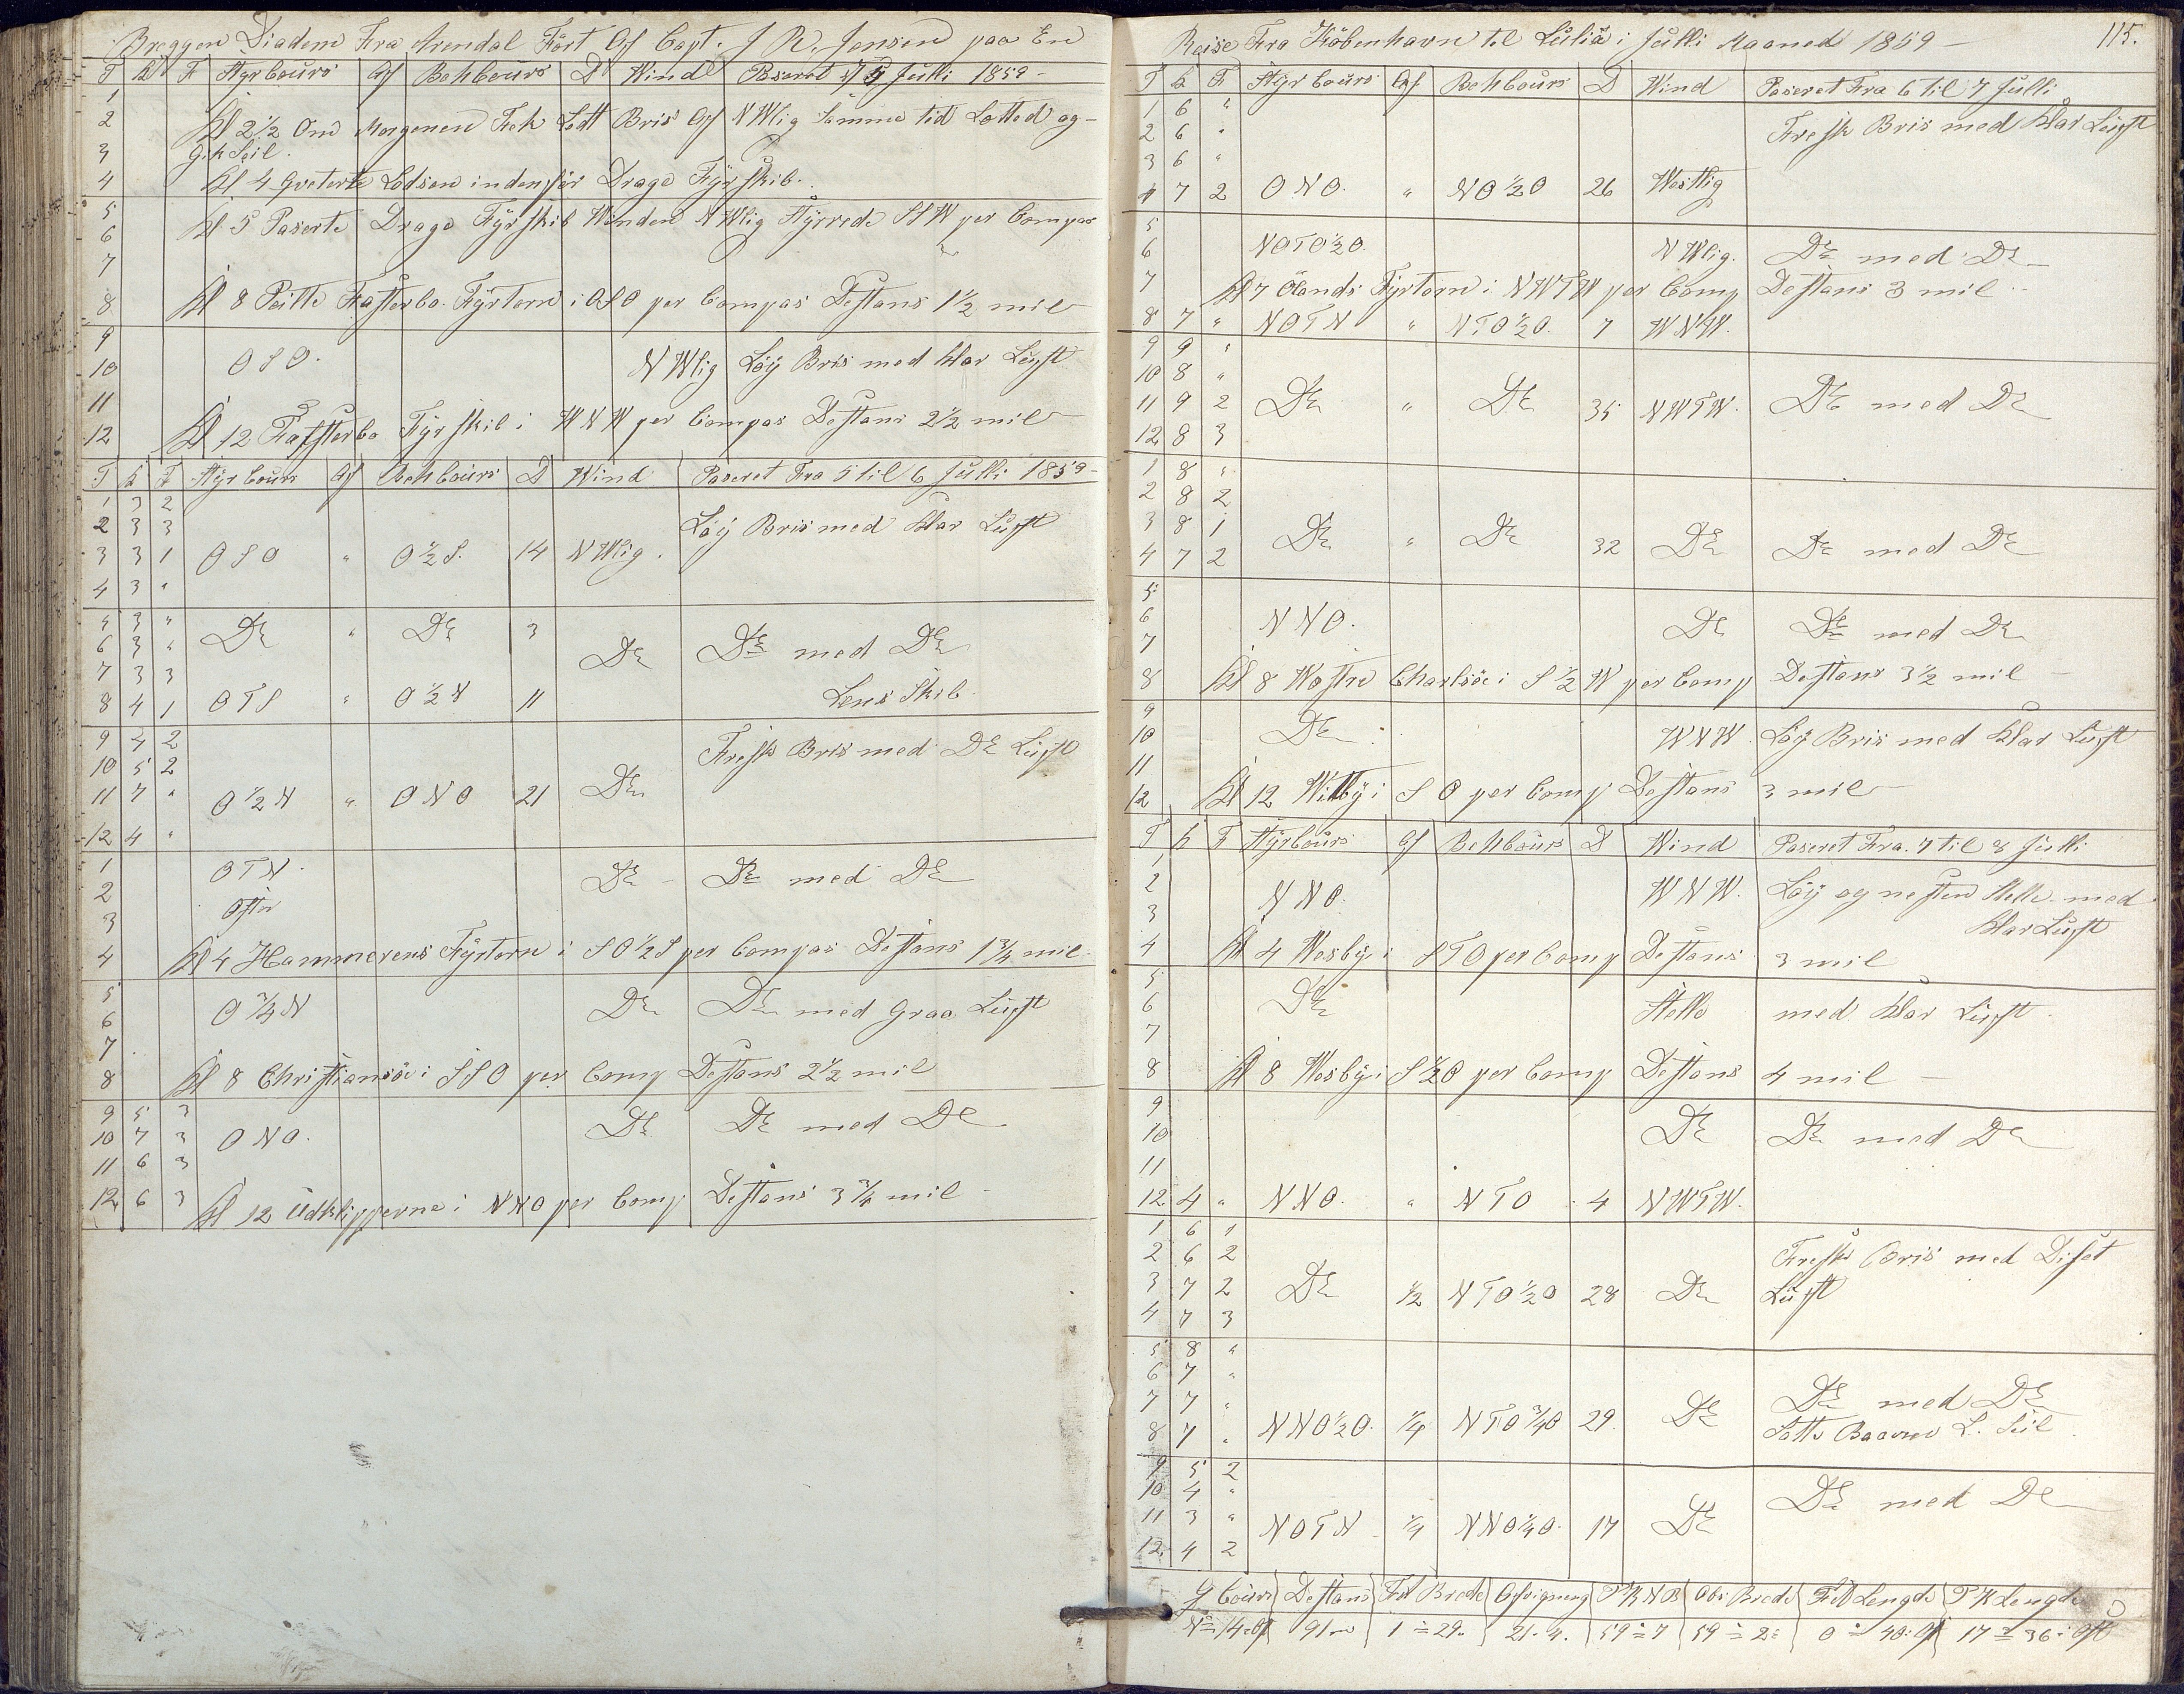 Breggen Diadem Fra Arendal Fört Af Capt. J R. Jensen paa En
T K F Styrcours Af Behcours D Wind Paseret 5 Julli 1859 -
1
2 Kl 2½ Om Morgenen Fek Lodt Bris Af NWlig Samme tid Letted og -
3 Gik Seil.
4 Kl 4 Qveterte Lodsen indenfor Drage Fÿrskib.
5 Kl 5 Paserte Drage Fÿrskib Winden NWlig Stÿrrede SSW per Compas
6
7
8 Kl 8 Peitte Fasterbo Fÿrtorn i OSO per Compas Destans 1½ mil
9
10 OSO. NWlig Löÿ Bris med klar Luft
11
12 Kl 12 Falsterbo Fÿrskib i WNW per Compas Destans 2½ mil
T K F Stÿrcours Af Behcours D Wind Paseret Fra 5 til 6 Julli 1859 -
1 3 2
2 3 3 Löÿ Bris med klar Luft
3 3 1 OSO " O½S. 14 NWlig.
4 3 "
5 3 " Do " Do 3
6 3 " Do Do med Do
7 3 3
8 4 1 OTS " O½N 11 Lens Skib
9 4 2 Fresk Bris med Do Luft
10 5 2
11 7 " O½N " ONO 21 Do
12 4 "
1 OTN. Do Do med Do
2 Ost
3
4 Kl 4 Hammerens Fÿrtorn i SO½S per Compas Destans 1¾ mil
5
6 O¾N Do Do med Graa Luft
7
8 Kl 8 Christiansöe i SSO per Comp Destans 2½ mil
9 5 3
10 7 3 ONO. Do Do med Do
11 6 3
12 6 3 Kl 12 Udklipperne i NNO per Comp Destans 3¾ mil
Reise Fra Köbenhavn til Luliå i Julli Maaned 1859 - 115.
T K F Stÿrcours Af Behcours D Wind Paseret Fra 6 til 7 Julli
1 6 " Fresk Bris med klar Luft
2 6 "
3 6 "
4 7 2 ONO. " NO½O 26 Westlig
5
6 NOTO½O. NWlig. Do med Do
7 Kl 7 Ölands Fÿrtorn i NWTW per Comp Destans 3 mil
8 7 " NOTN " NTO½O. 7 WNW.
9 9 "
10 8 "
11 9 2 Do " Do 35 NWTW. Do med Do
12 8 3
1 8 "
2 8 2
3 8 1 Do " Do 32 Do Do med Do
4 7 2
5
6 NNO. Do Do med Do
7
8 Kl 8 Westre Charlsöe i S½W per Comp Destans 3½ mil
9
10 Do WNW. Löÿ Bris med klar Luft
11
12 Kl 12 Wisbÿ i SO per Comp Destans 3 mil
T K F Stÿrcours Af Behcours D Wind Paseret Fra 7 til 8 Julli
1
2 NNO. WNW. Löÿ og nesten Stelle med
3 klar Luft
4 Kl 4 Wesbÿ i STO per Comp Destans 3 mil
5
6 Do Stelle med klar Luft.
7
8 Kl 8 Wesbÿ i S½O per Comp Destans 4 mil
9
10 Do Do med Do
11
12 4 " NNO. " NTO 4 NWTW.
1 6 1
2 6 2 Fresk Bris med Diset
3 7 2 Do ½ NTO½O 28 Do Luft
4 7 3
5 8 "
6 7 "
7 7 " Do med Do
8 7 " NNO½O. ¼ NTO¾O 29. Do Satte L. Seil
9 5 2
10 4 " Do med Do
11 3 " NOTN ¼ NNO¼O. 17 Do
12 4 2
G Cours Destans Fdt Brede Afvigning PKNB Obs Brede Fdt Lengde PKLengde
No 14 Of 91m 1 = 29. 21.4. 59=7 59=2 0=40: Of 17=36: Ost